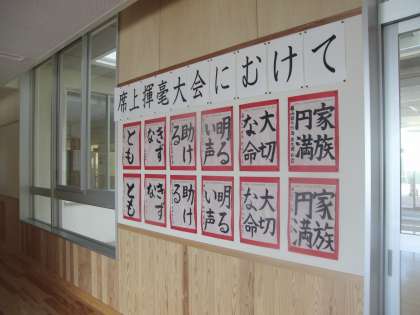 席上揮毫大会にむけて
家族円満
大切な命
明るい声
助ける
きずな
とも
家族円満
大切な命
明るい声
助ける
きずな
とも